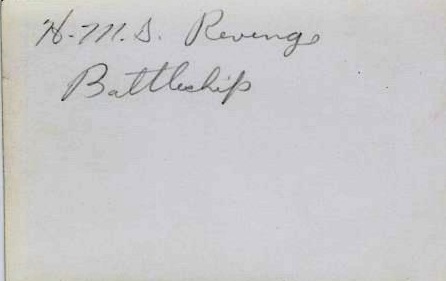 H.M.S. Revenge
Battleship